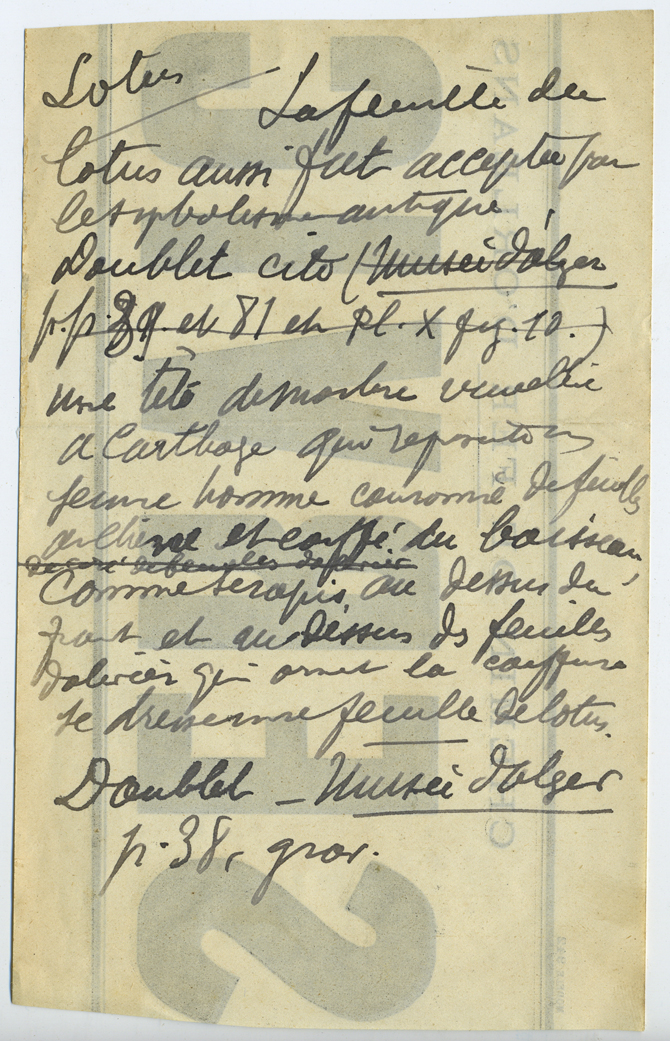 Lotus
La feuille du
lotus aussi fut acceptée par
le symbolisme antique.
Doublet cite (Musée d'Alger
p.p. et 81 et Pl. X fig. 10.)
une tête de marbre
a Carthage qui
jeune homme couronné de feuilles
de chêne et coiffé du boisseau,
décoré de feuilles d'olivier
comme Serapis, au dessus du
front et au dessus des feuilles
d'olivier qui ornent la coiffure
se dresse une feuille de lotus.
Doublet – Musée d'Alger
p. 38, grav.